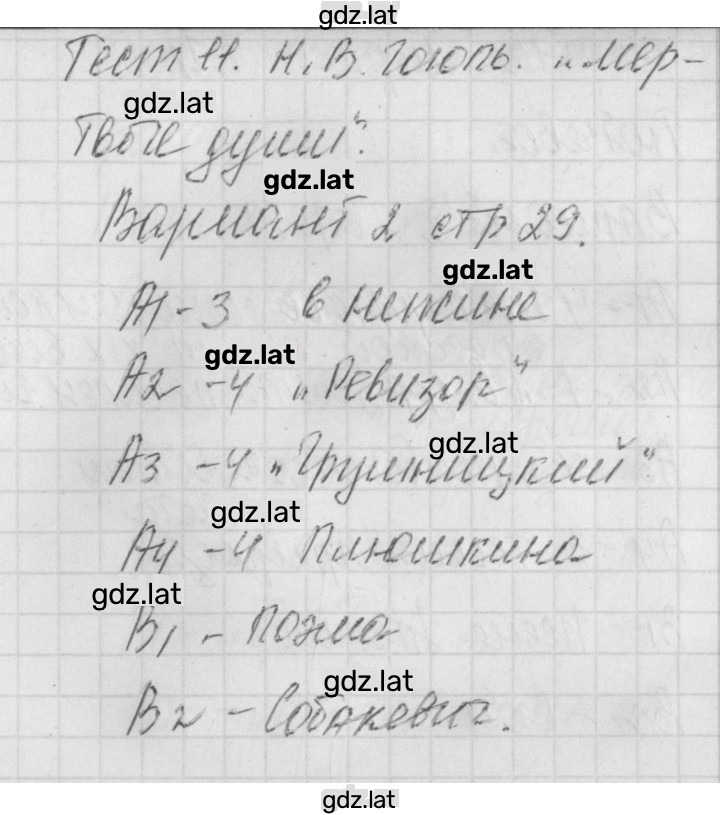 gdz.lat
Тест 11. Н.В. Гоголь. "Мер-
gdz.lat
твые души".
gdz.lat
Вариант 2 стр 29.
gdz.lat
А1 - 3 в нежине
gdz.lat
А2 - 4 "Ревизор"
gdz.lat
А3 - 4 "Грушницкий".
gdz.lat
А4 - 4 Плюшкина
gdz.lat
В1 - поэма
gdz.lat
В2 - Собакевич.
gdz.lat